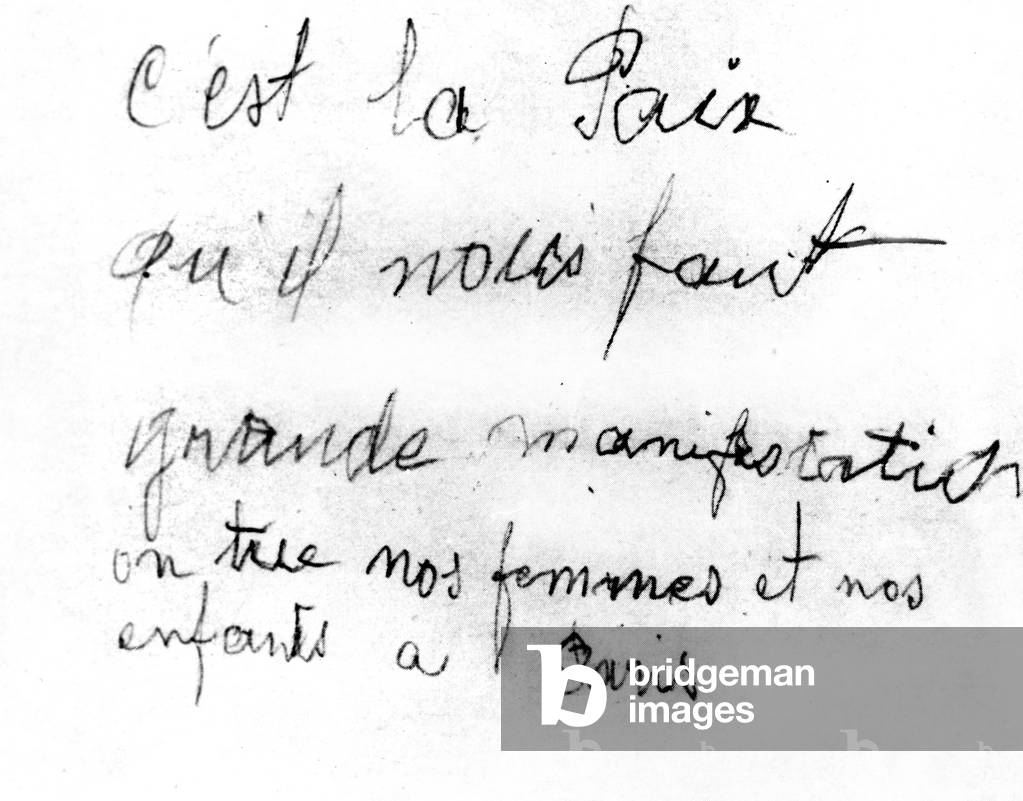 C'est la Paix
qu'il nous faut
grande manifestation
on tue nos femmes et nos
enfants a Paris
bridgeman
images